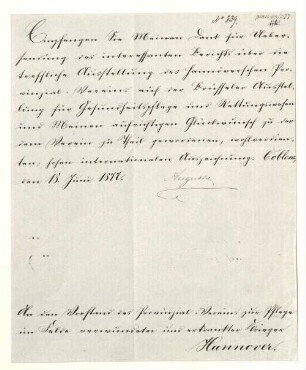 No 339.
Empfangen Sie Meinen Dank für Ueber-
sendung des interessanten Berichts über die
treffliche Ausstellung des hannoverschen Pro-
vinzial-Vereins auf der Brüsseler Ausstel-
lung für Gesundheitspflege und Rettungswesen
und Meinen aufrichtigen Glückwunsch zu der
dem Verein zu Theil gewordenen, wohlverdien-
ten, hohen internationalen Auszeichnung. Coblenz,
den 18. Juni
Augusta
An den Vorstand des Provinzial-Vereins zur Pflege
im Felde verwundeter und erkrankter Krieger
Hannover.